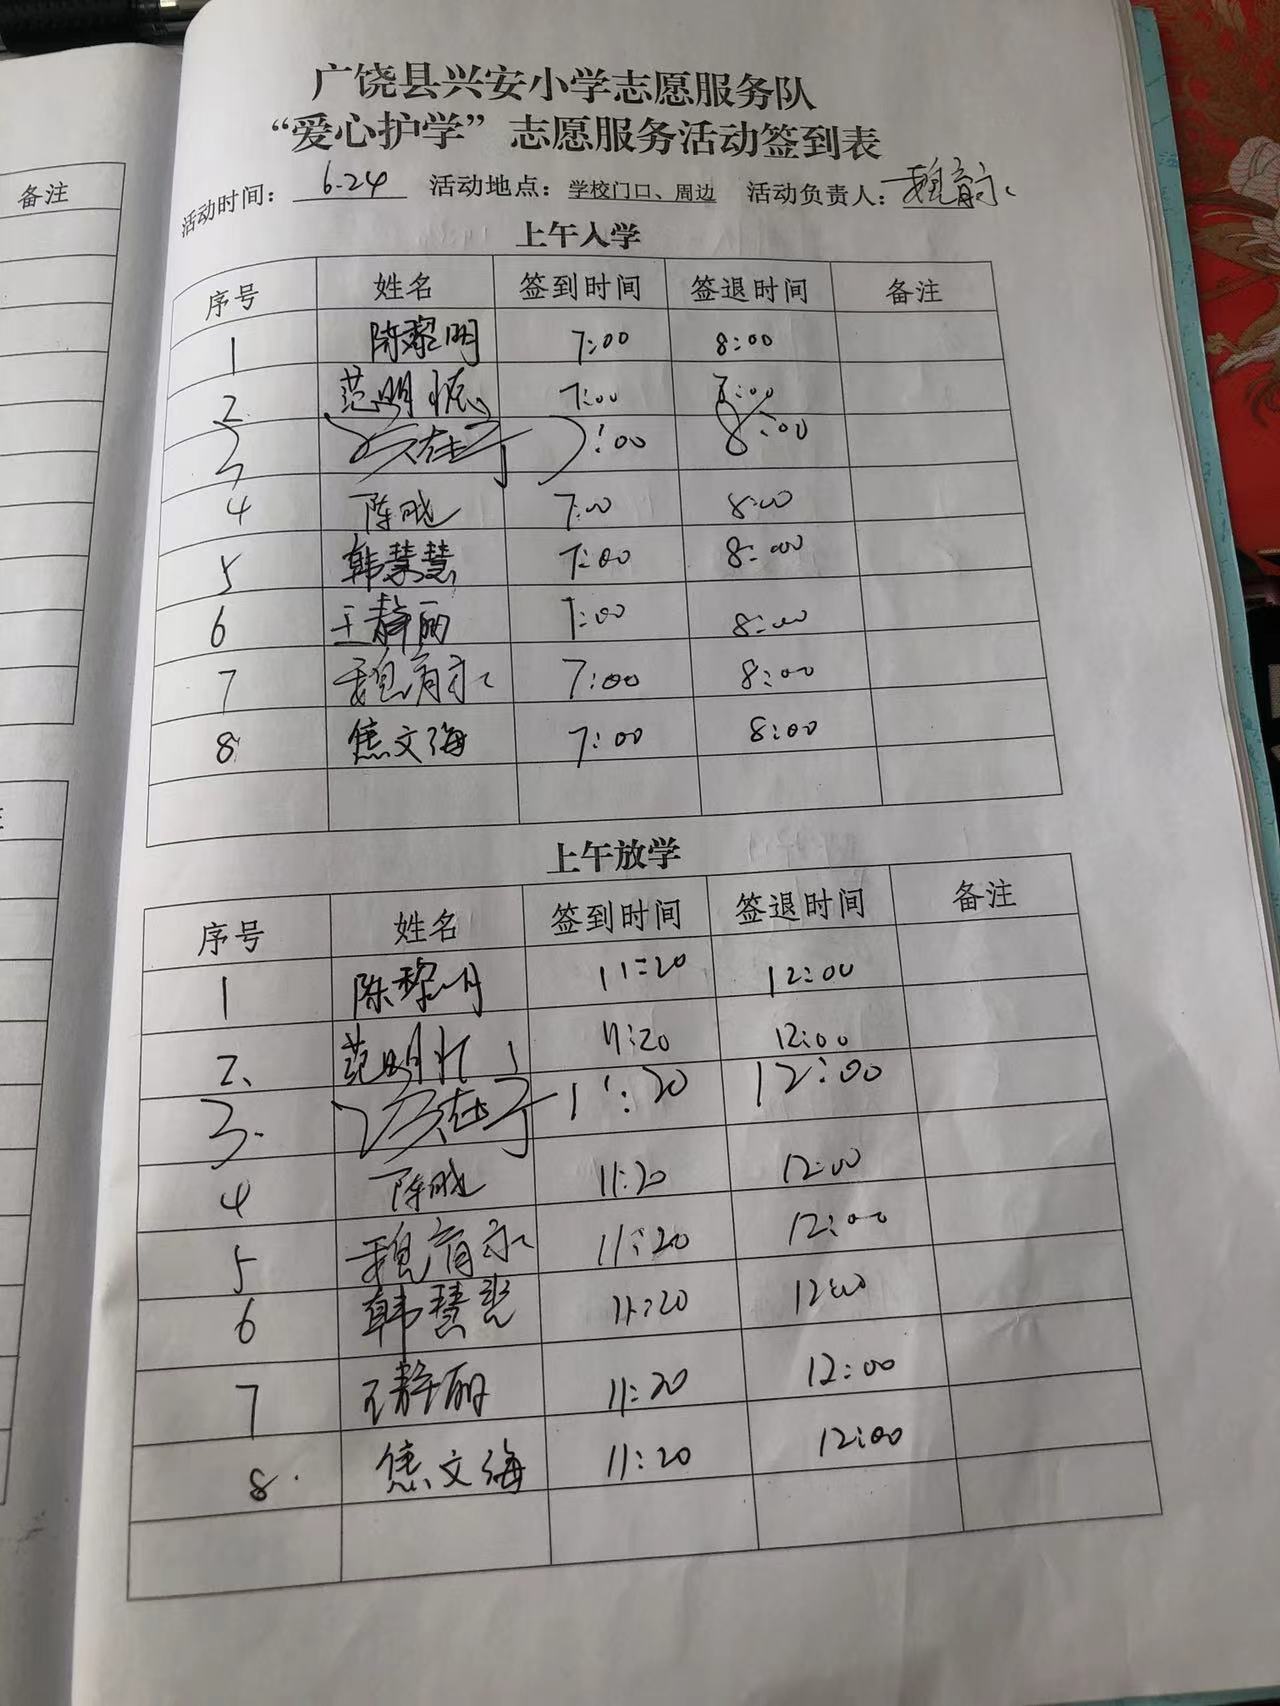 备注
广饶县兴安小学志愿服务队
“爱心护学”志愿服务活动签到表
活动时间： 6.24 活动地点：学校门口、周边 活动负责人：魏育永
上午入学
序号 姓名 签到时间 签退时间 备注
1 陈黎明 7:00 8:00
2 范明 7:00 8:00
3 7:00 8:00
4 陈晓 7:00 8:00
5 韩慧慧 7:00 8:00
6 王静丽 7:00 8:00
7 魏育永 7:00 8:00
8 焦文海 7:00 8:00
上午放学
序号 姓名 签到时间 签退时间 备注
1 陈黎明 11:20 12:00
2、 范明 11:20 12:00
3. 11:20 12:00
4 陈晓 11:20 12:00
5 魏育永 11:20 12:00
6 韩慧慧 11:20 12:00
7 王静丽 11:20 12:00
8. 焦文海 11:20 12:00